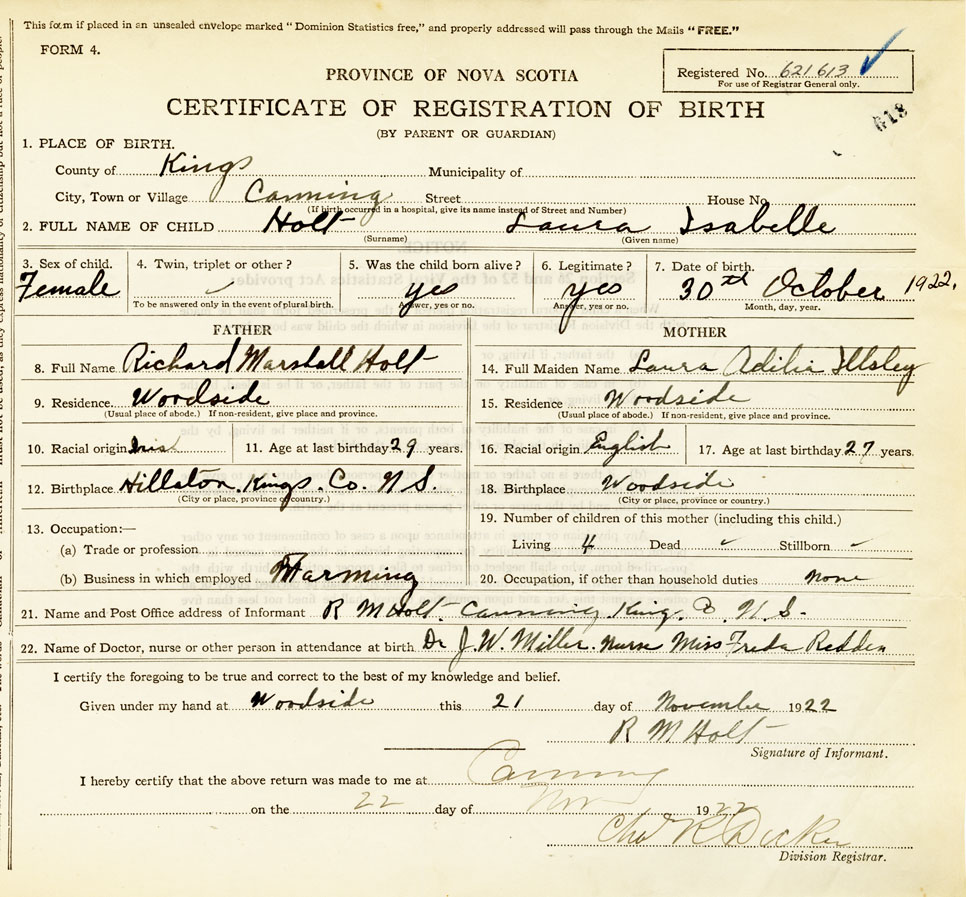 This form if placed in an unsealed envelope marked "Dominion Statistics free," and properly addressed will pass through the Mails "FREE."
FORM 4.
Registered No. 621613
For use of Registrar General only.
PROVINCE OF NOVA SCOTIA
CERTIFICATE OF REGISTRATION OF BIRTH
618
(BY PARENT OR GUARDIAN)
1. PLACE OF BIRTH.
County of Kings Municipality of
City, Town or Village Canning Street House No.
(If birth occurred in a hospital, give its name instead of Street and Number)
2. FULL NAME OF CHILD Holt Laura Isabelle
(Surname) (Given name)
3. Sex of child. 4. Twin, triplet or other? 5. Was the child born alive? 6. Legitimate? 7. Date of birth.
Female yes yes 30th October 1922.
To be answered only in the event of plural birth. Answer, yes or no. Answer, yes or no. Month, day, year.
FATHER MOTHER
8. Full Name Richard Marshall Holt 14. Full Maiden Name Laura Adilia Illsley
9. Residence Woodside 15. Residence Woodside
(Usual place of abode.) If non-resident, give place and province. (Usual place of abode.) If non-resident, give place and province.
10. Racial origin Irish 11. Age at last birthday 29 years. 16. Racial origin English 17. Age at last birthday 27 years.
12. Birthplace Hillaton. Kings. Co. N S. 18. Birthplace Woodside
(City or place, province or country.) (City or place, province or country.)
13. Occupation:— 19. Number of children of this mother (including this child.)
(a) Trade or profession Living 4 Dead Stillborn
(b) Business in which employed Farming 20. Occupation, if other than household duties none
21. Name and Post Office address of Informant R M Holt. Canning. King. Co. N. S.
22. Name of Doctor, nurse or other person in attendance at birth Dr J. W. Miller. Nurse Miss Freda Redden
I certify the foregoing to be true and correct to the best of my knowledge and belief.
Given under my hand at Woodside this 21 day of November 1922
R M Holt
Signature of Informant.
I hereby certify that the above return was made to me at Canning
on the 22 day of Nov 1922
Chas R
Division Registrar.